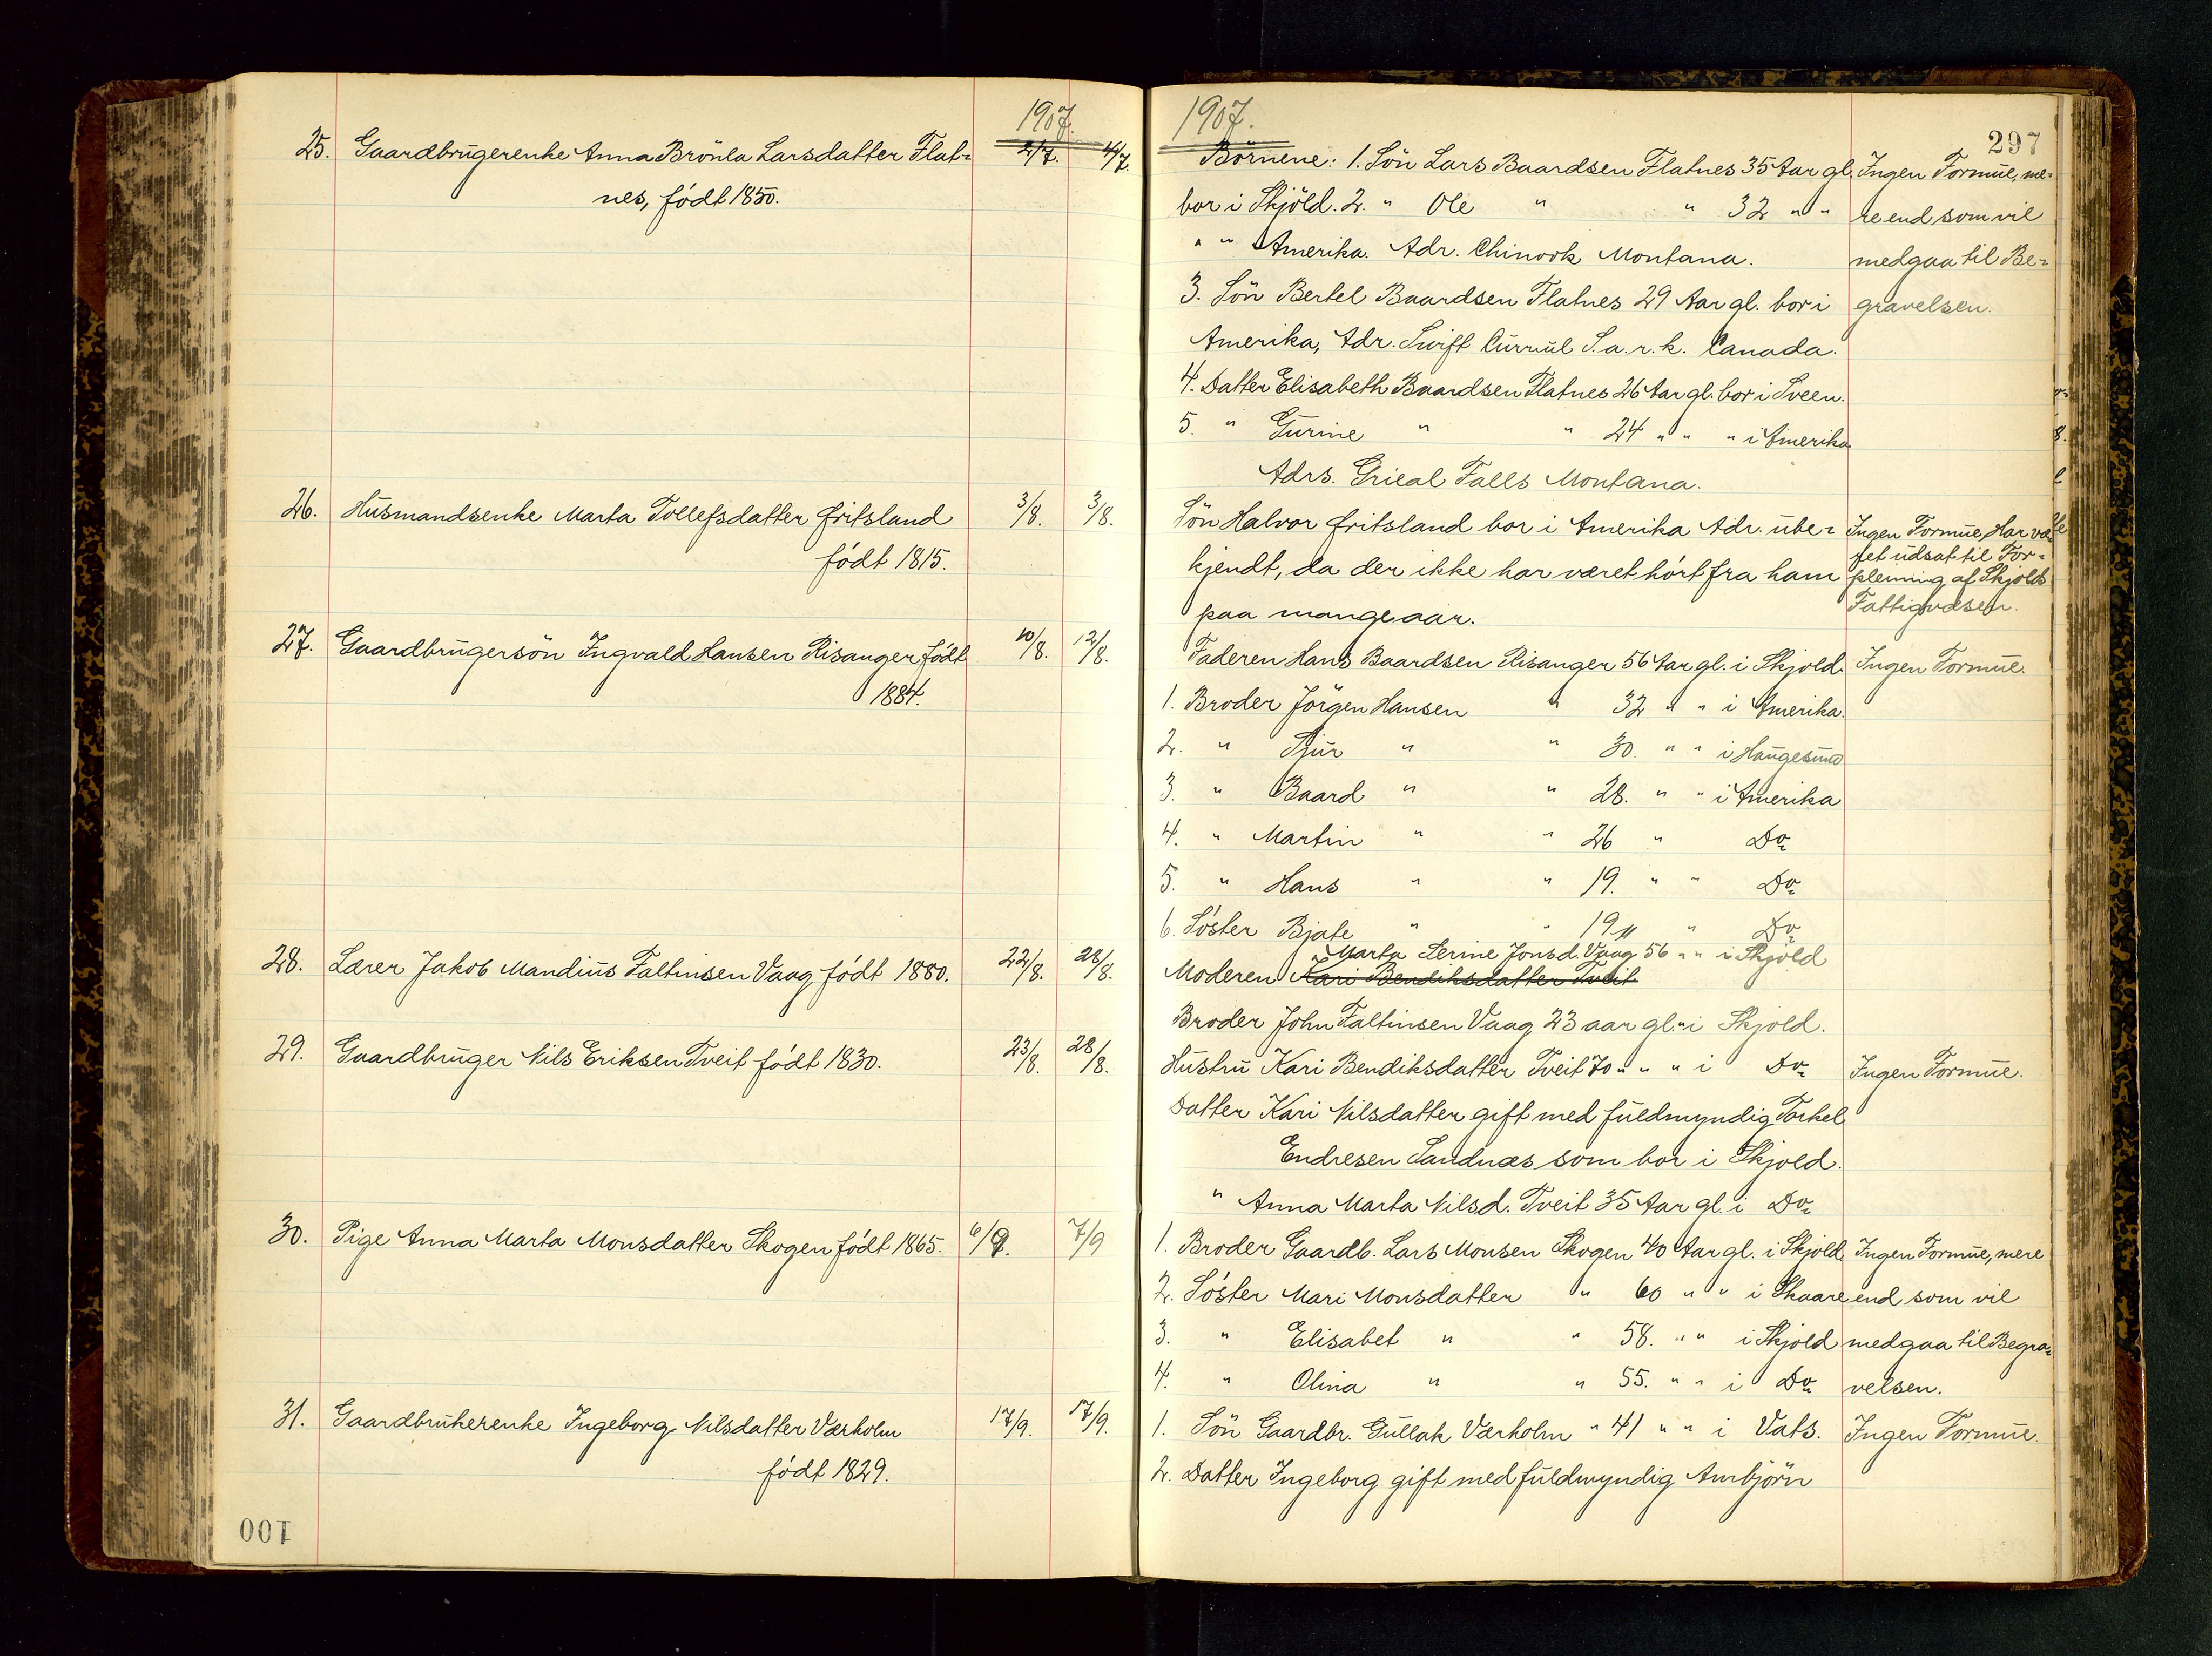 1907.
25. Gaardbrugerenke Anna Brönla Larsdatter Flat= 2/7. 4/7.
nes, födt 1850.
26. Husmandsenke Marta Tollefsdatter Fritsland 3/8. 3/8.
födt 1815.
27. Gaardbrugersön Ingvald Hansen Risanger födt 10/8. 12/8.
1884.
28. Lærer Jakob Mandius Faltinsen Vaag födt 1880. 22/8. 28/8.
29. Gaardbruger Nils Eriksen Tveit födt 1830. 23/8. 28/8.
30. Pige Anna Marta Monsdatter Skogen födt 1865. 6/9. 7/9
31. Gaardbrukerenke Ingeborg Nilsdatter Værholm 17/9. 17/9.
födt 1829.
100
1907.
297
Börnene: 1. Sön Lars Baardsen Flatnes 35 Aar gl. Ingen Formue, me=
bor i Skjöld. 2. " Ole " " 32 " " re end som vil
" " Amerika. Adr. Chinook Montana. medgaa til Be=
3. Sön Bertel Baardsen Flatnes 29 Aar gl. bor i gravelsen.
Amerika, Adr. Swift Currul S.a.r.k. Canada.
4. Datter Elisabeth Baardsen Flatnes 26 Aar gl. bor i Sveen.
5. " Gurine " " 24 " " " i Amerika
Adrs. Grieal Falls Montana.
Sön Halvor Fritsland bor i Amerika Adr. ube= Ingen Formue, Har væ=
ret udsat til For=
kjendt, da der ikke har været hört fra ham pleining af Skjolds
paa mange aar. Fattigvæsen.
Faderen Hans Baardsen Risanger 56 Aar gl. i Skjold. Ingen Formue.
1. Broder Jörgen Hansen " 32 " " i Amerika.
2. " Sjur " " 30. " " i Haugesund
3. " Baard " " 28. " " i Amerika
4. " Martin " " 26 " Do
5. " Hans " " 19. " " Do
6. Söster Bjate " " 19 " " Do
Marta Serine Jonsd. Vaag 56 " " i Skjöld
Moderen Kari Bendiksdatter Tveit
Broder John Faltinsen Vaag 23 aar gl. " i Skjold.
Hustru Kari Bendiksdatter Tveit 70 " " " i Do Ingen Formue.
Datter Kari Nilsdatter gift med fuldmyndig Torkel
Endresen Sandnæs som bor i Skjold.
" Anna Marta Nilsd. Tveit 35 Aar gl. i Do
1. Broder Gaardb. Lars Monsen Skogen 40 Aar gl. i Skjold Ingen Formue, mere
2. Söster Mari Monsdatter " 60 " " i Skaare end som vil
3. " Elisabet " " 58. " " i Skjold medgaa til Begra=
4. " Olina " " 55. " " i Do velsen.
1. Sön Gaardbr. Gullak Værholm " 41 " " i Vats. Ingen Formue.
2. Datter Ingeborg gift med fuldmyndig Ambjörn